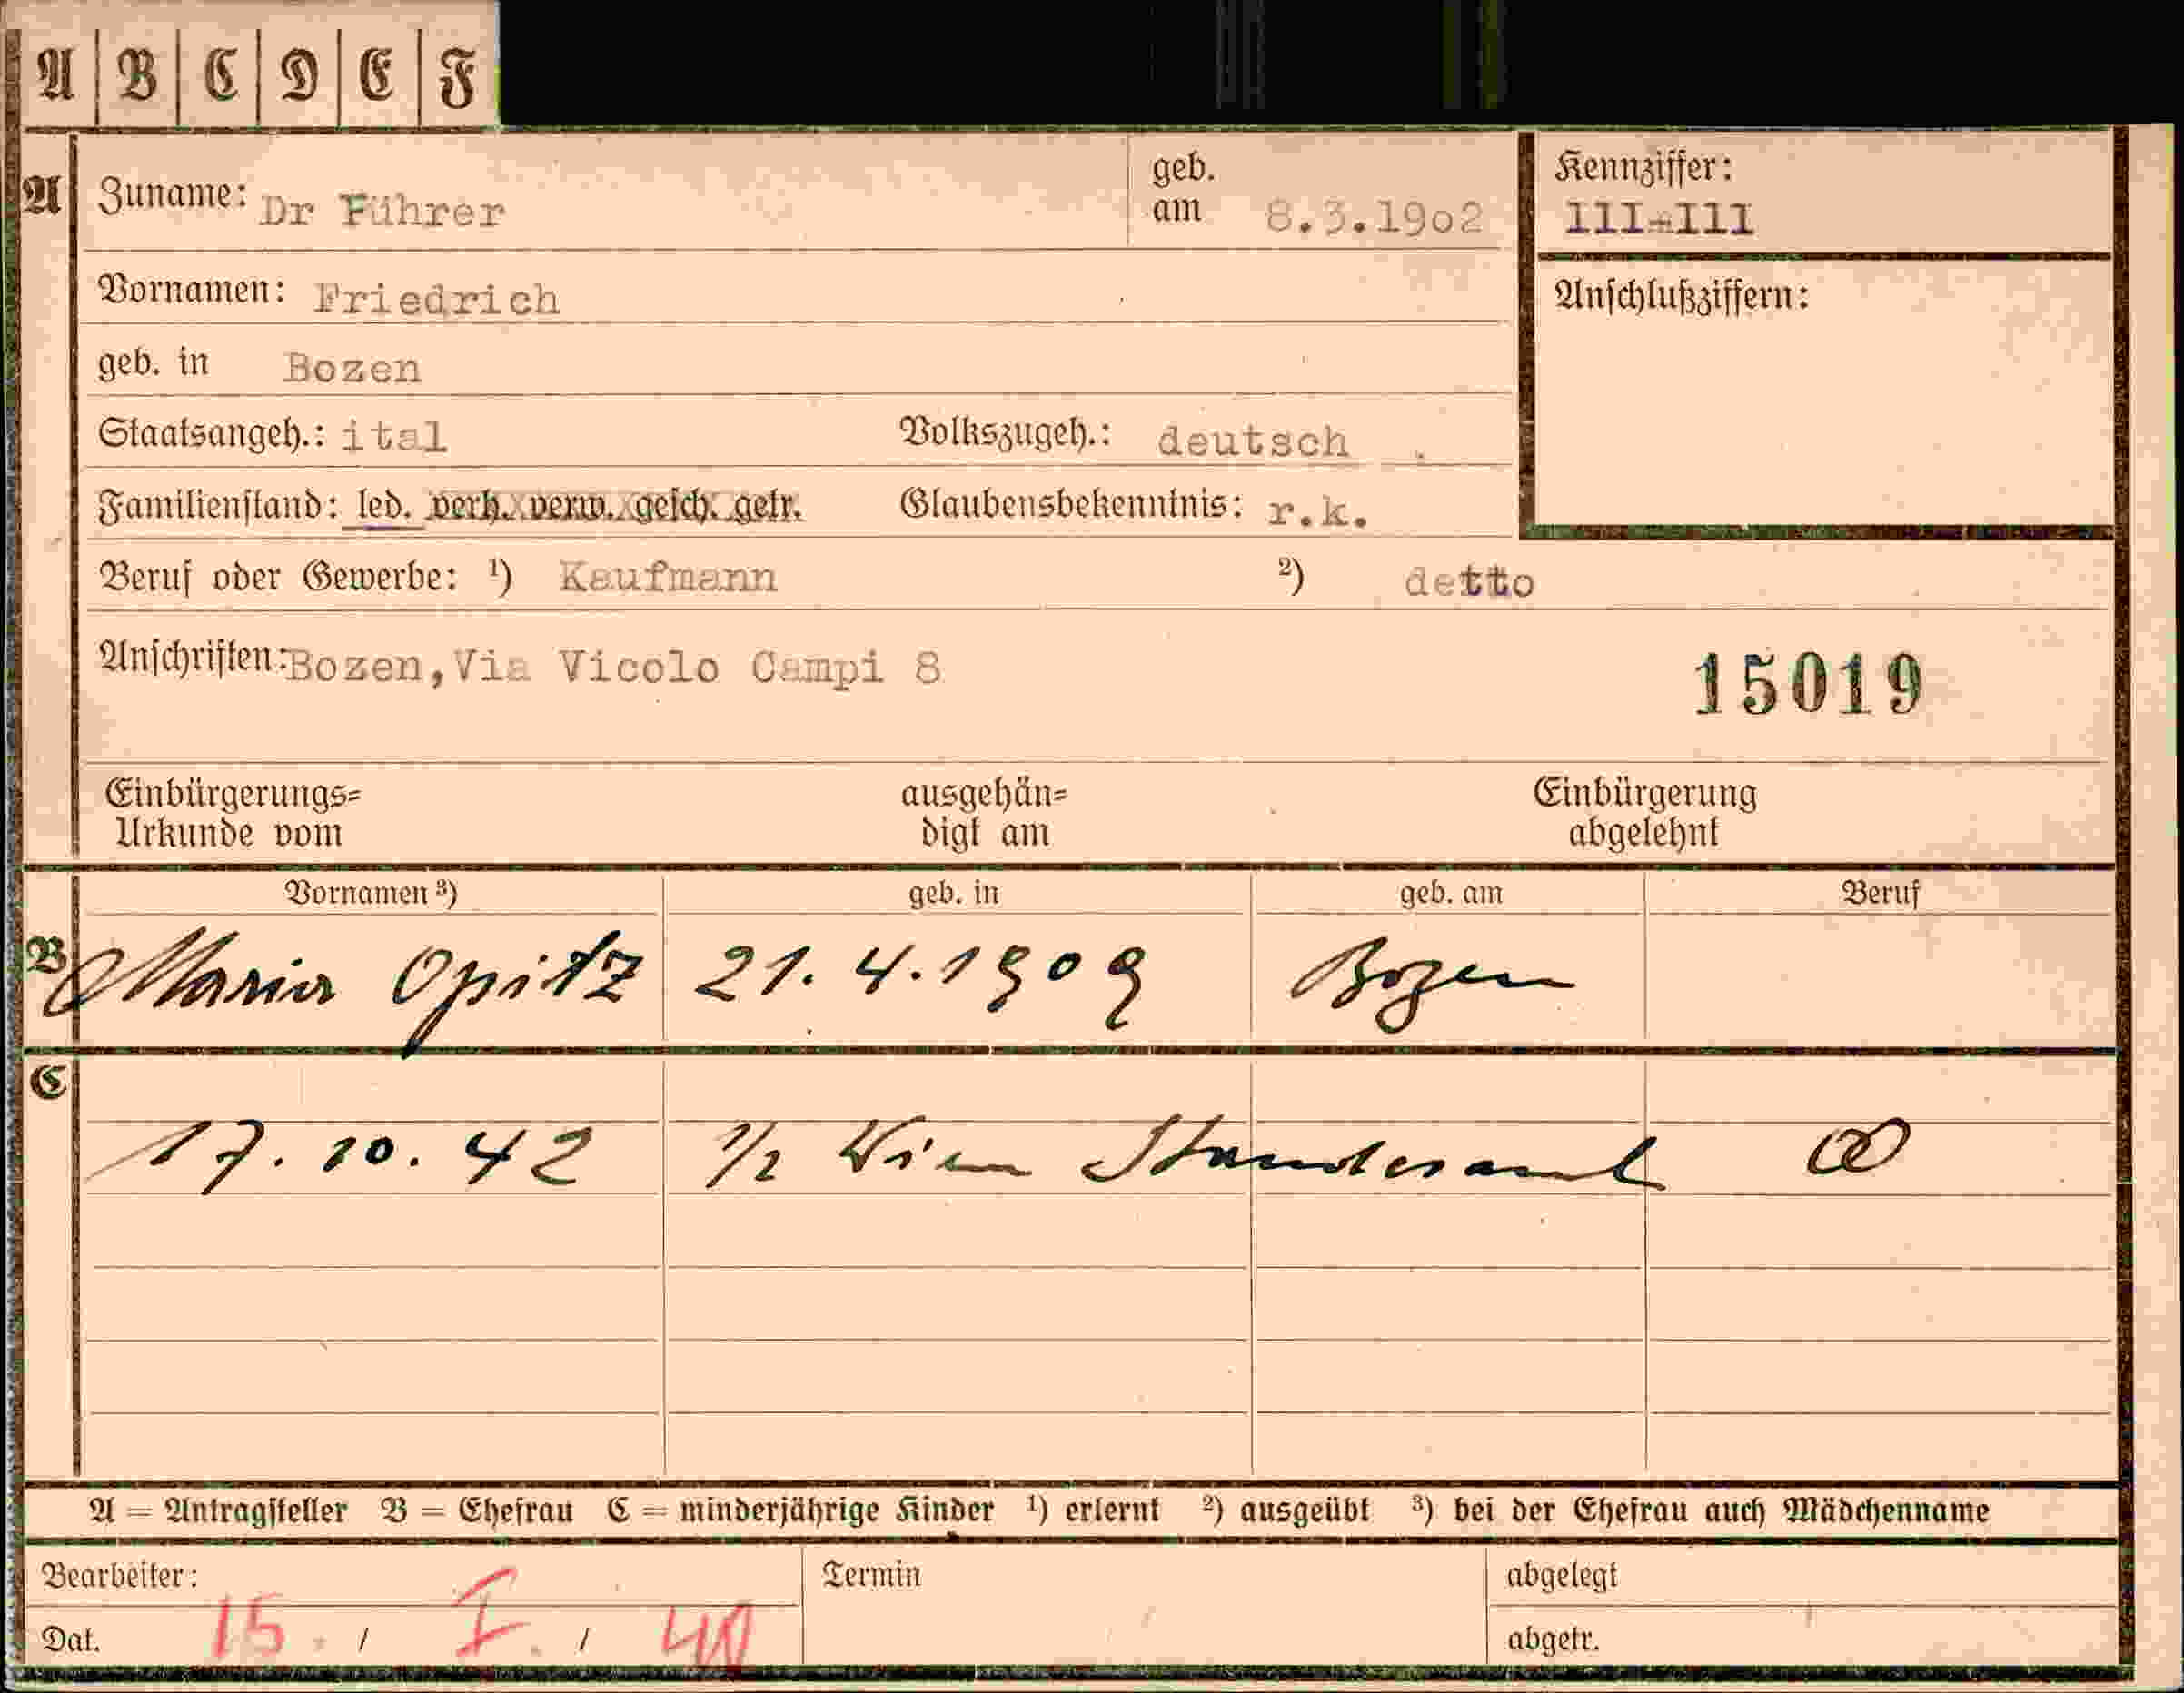 A B C D E F
A Zuname: Dr Führer geb. am 8.3.1902 Kennziffer: III-III
Vornamen: Friedrich Anschlußziffern:
geb. in Bozen
Staatsangeh.: ital Volkszugeh.: deutsch
Familienstand: led. verh. verw. gesch. getr. Glaubensbekenntnis: r.k.
Beruf oder Gewerbe: ¹) Kaufmann ²) detto
Anschriften: Bozen, Via Vicolo Campi 8
15019
Einbürgerungs= ausgehän= Einbürgerung
Urkunde vom digt am abgelehnt
Vornamen ³) geb. in geb. am Beruf
B Maria Opitz 21.4.1909 Bozen
C
17.10.42 1/2 Wien Standesamt ꝏ
A = Antragsteller B = Ehefrau C = minderjährige Kinder ¹) erlernt ²) ausgeübt ³) bei der Ehefrau auch Mädchenname
Bearbeiter: Termin abgelegt
Dat. 15. / I. / 40 abgetr.